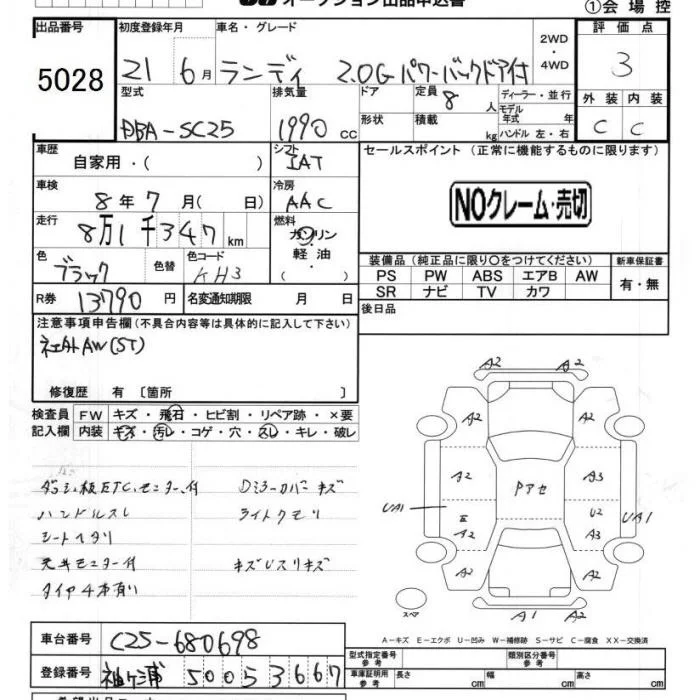 オークション出品申込書
①会場控
出品番号 初度登録年月 車名・グレード 2WD・4WD 評価点
5028 21 6月 ランディ 2.0G パワーバックドア付 3
型式 排気量 ドア 定員 8人 ディーラー・並行 外装 内装
DBA-SC25 1990cc 形状 積載 kg モデル年式 年 ハンドル 左・右 C C
車歴 自家用・( ) シフト IAT セールスポイント (正常に機能するものに限ります)
車検 8年7月( 日) 冷房 AAC
NOクレーム・売切
走行 8万1千347km 燃料 ガソリン 軽油・
装備品 (純正品に限り○をつけてください) 新車保証書
色 ブラック 色替 色コード KH3
PS PW ABS エアB AW 有・無
SR ナビ TV カワ
R券 13790円 名変通知期限 月 日
後日品
注意事項申告欄 (不具合内容等は具体的に記入して下さい)
社外AW(ST)
修復歴 有 〔箇所 〕
検査員 FW キズ・飛石・ヒビ割・リペア跡・×要
記入欄 内装 キズ・汚レ・コゲ・穴・スレ・キレ・破レ
A2 A2
A2 A2
A2 Pアセ A3
UA1 U2 UA1
A2 A3
A2 A2
A1 A2
スペア
ダッシュ板ETC、モニター付 Dミラーカバーキズ
ハンドルスレ ライトクモリ
シートヘタリ
天井モニター付 キズUスリキズ
タイヤ4本有り
A-キズ E-エクボ U-凹み W-補修跡 S-サビ C-腐食 XX-交換済
車台番号 C25-680698
型式指定番号 参考 類別区分番号 参考
登録番号 袖ヶ浦 500 さ 3667
車庫証明用 参考 長さ cm 幅 cm 高さ cm